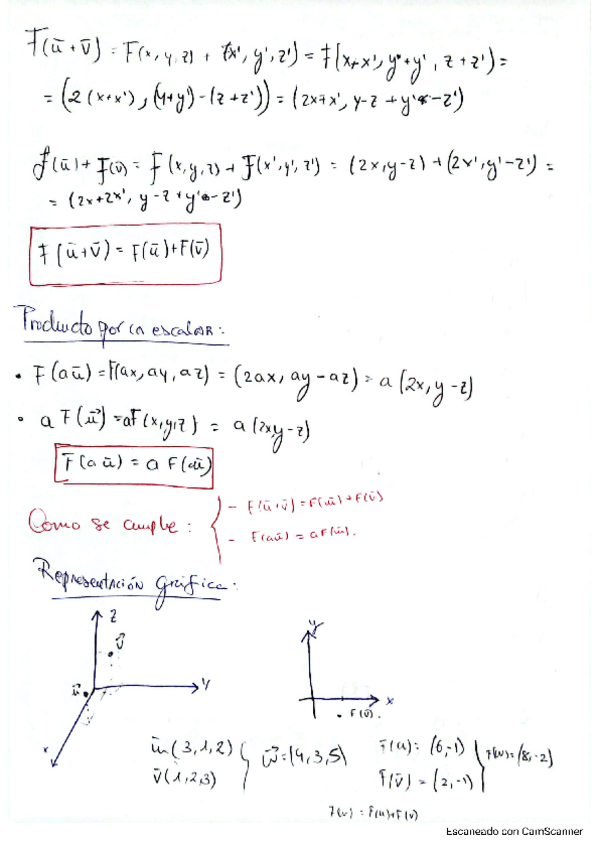 F(ū+v̄) = F(x, y, z) + (x', y', z') = F(x+x', y+y', z+z') =
= (2(x+x'), (y+y')-(z+z')) = (2x+x', y-z+y'-z')
F(ū)+F(v̄) = F(x,y,z)+F(x',y',z') = (2x,y-z)+(2x',y'-z') =
= (2x+2x', y-z+y'-z')
F(ū+v̄) = F(ū)+F(v̄)
Producto por un escalar:
• F(aū) = F(ax, ay, az) = (2ax, ay-az) = a(2x, y-z)
• aF(ū) = aF(x,y,z) = a(2x,y-z)
F(aū) = a F(aū)
Como se cumple:
- F(ū+v̄) = F(ū)+F(v̄)
- F(aū) = aF(ū).
Representación gráfica:
Z
v̄
Y
ū
x
y
x
F(v̄).
ū(3,1,2)
v̄(1,2,3)
w̄=(4,3,5)
F(u) = (6,-1)
F(v̄) = (2,-1)
F(w) = (8,-2)
F(w) = F(u)+F(v)
Escaneado con CamScanner